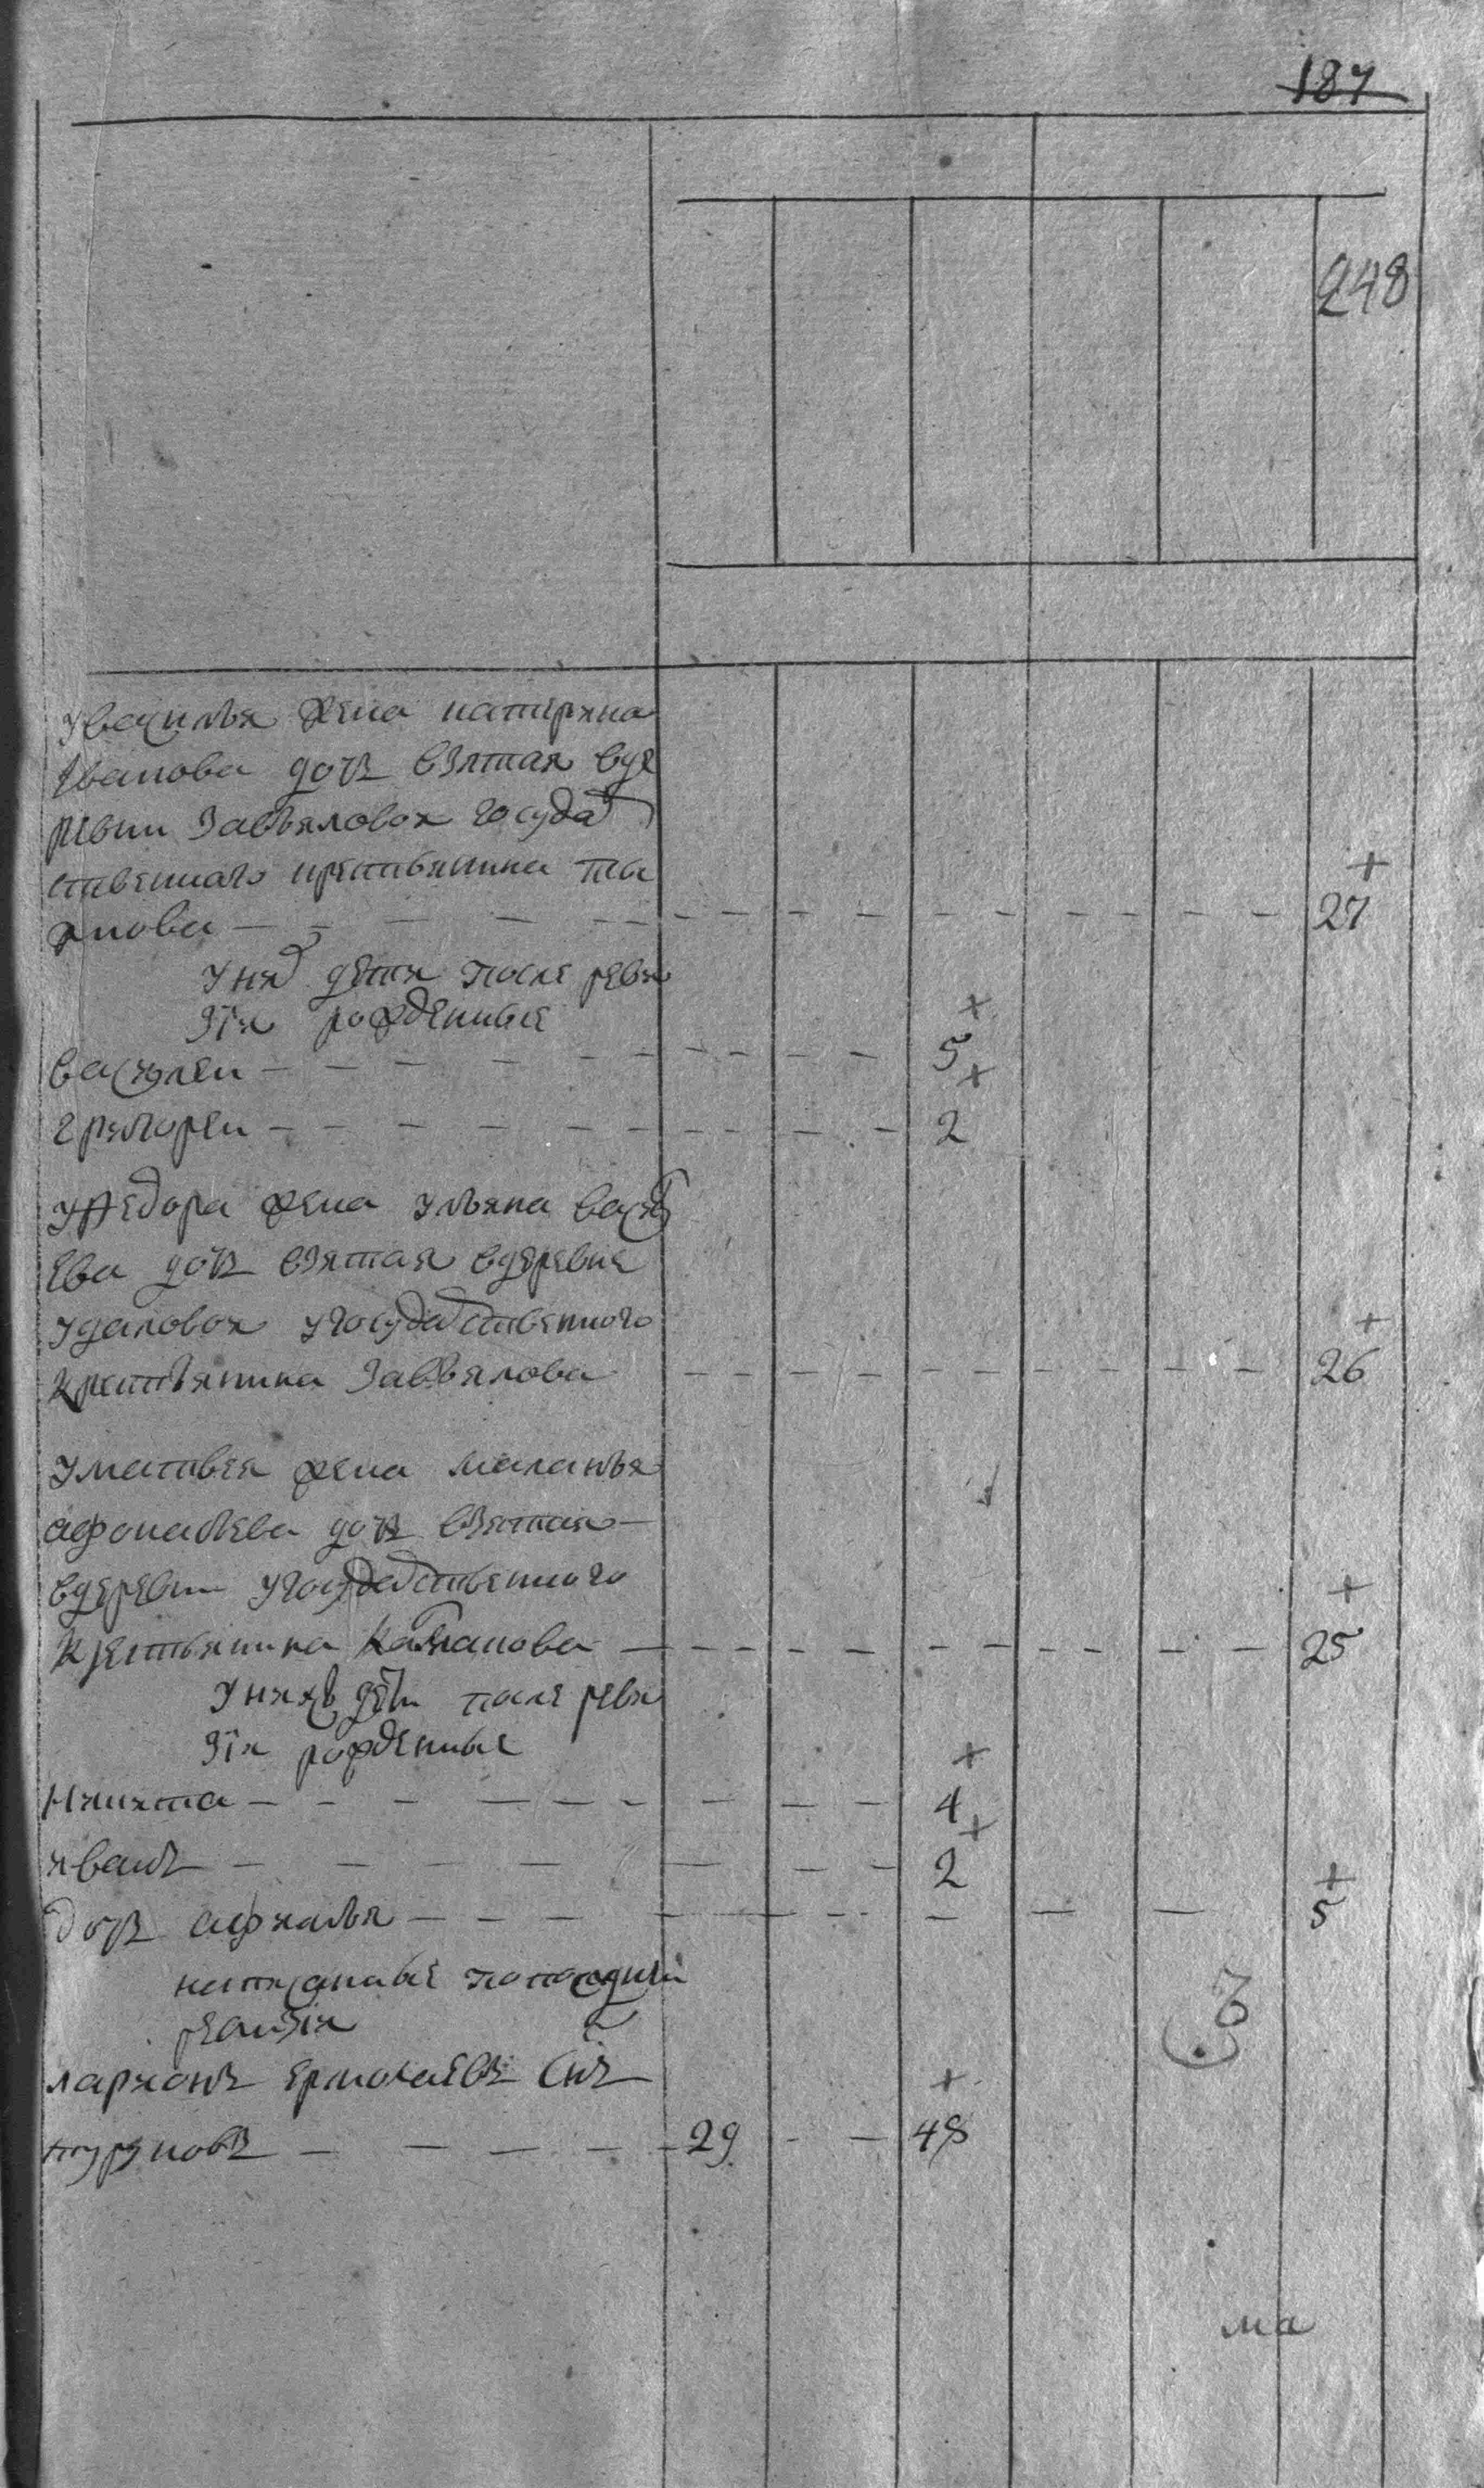 187
248
у василья жена катерина
Иванова дочь взятая в де
ревни Завьяловой государ
ственнаго крестьянина
27
у них дети после реви
зіи рожденные
василеи 5
григореи 2
у Федора жена ульяна василь
ева дочь взятая в деревне
удаловой у государственного
крестьянина Завьялова 26
у матвея жена маланья
афонасьева дочь взятая
в деревни у государственного
крестьянина 25
у нихъ дети после реви
зіи рожденные
Никита 4
иванъ 2
дочь афимья 5
написанные по последней
ревизіи
ларионъ ермолаевъ Снъ
29 48
ма